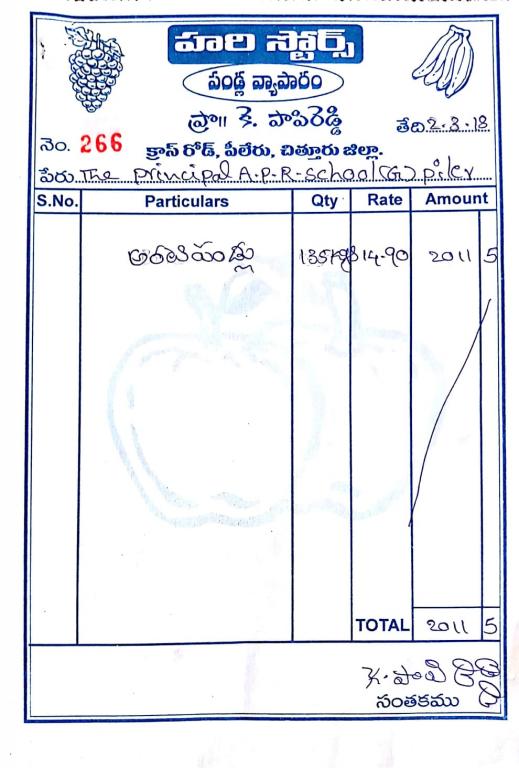 హరి స్టోర్స్
పండ్ల వ్యాపారం
ప్రొ॥ కె. పాపిరెడ్డి
తేది 2-3-18
నెం. 266
క్రాస్ రోడ్, పీలేరు, చిత్తూరు జిల్లా.
పేరు The principal A.P.R-school(G) piler
S.No. Particulars Qty Rate Amount
అరటిపండ్లు 14-90 2011 5
TOTAL 2011 5
కె. పాపిరెడ్డి
సంతకము